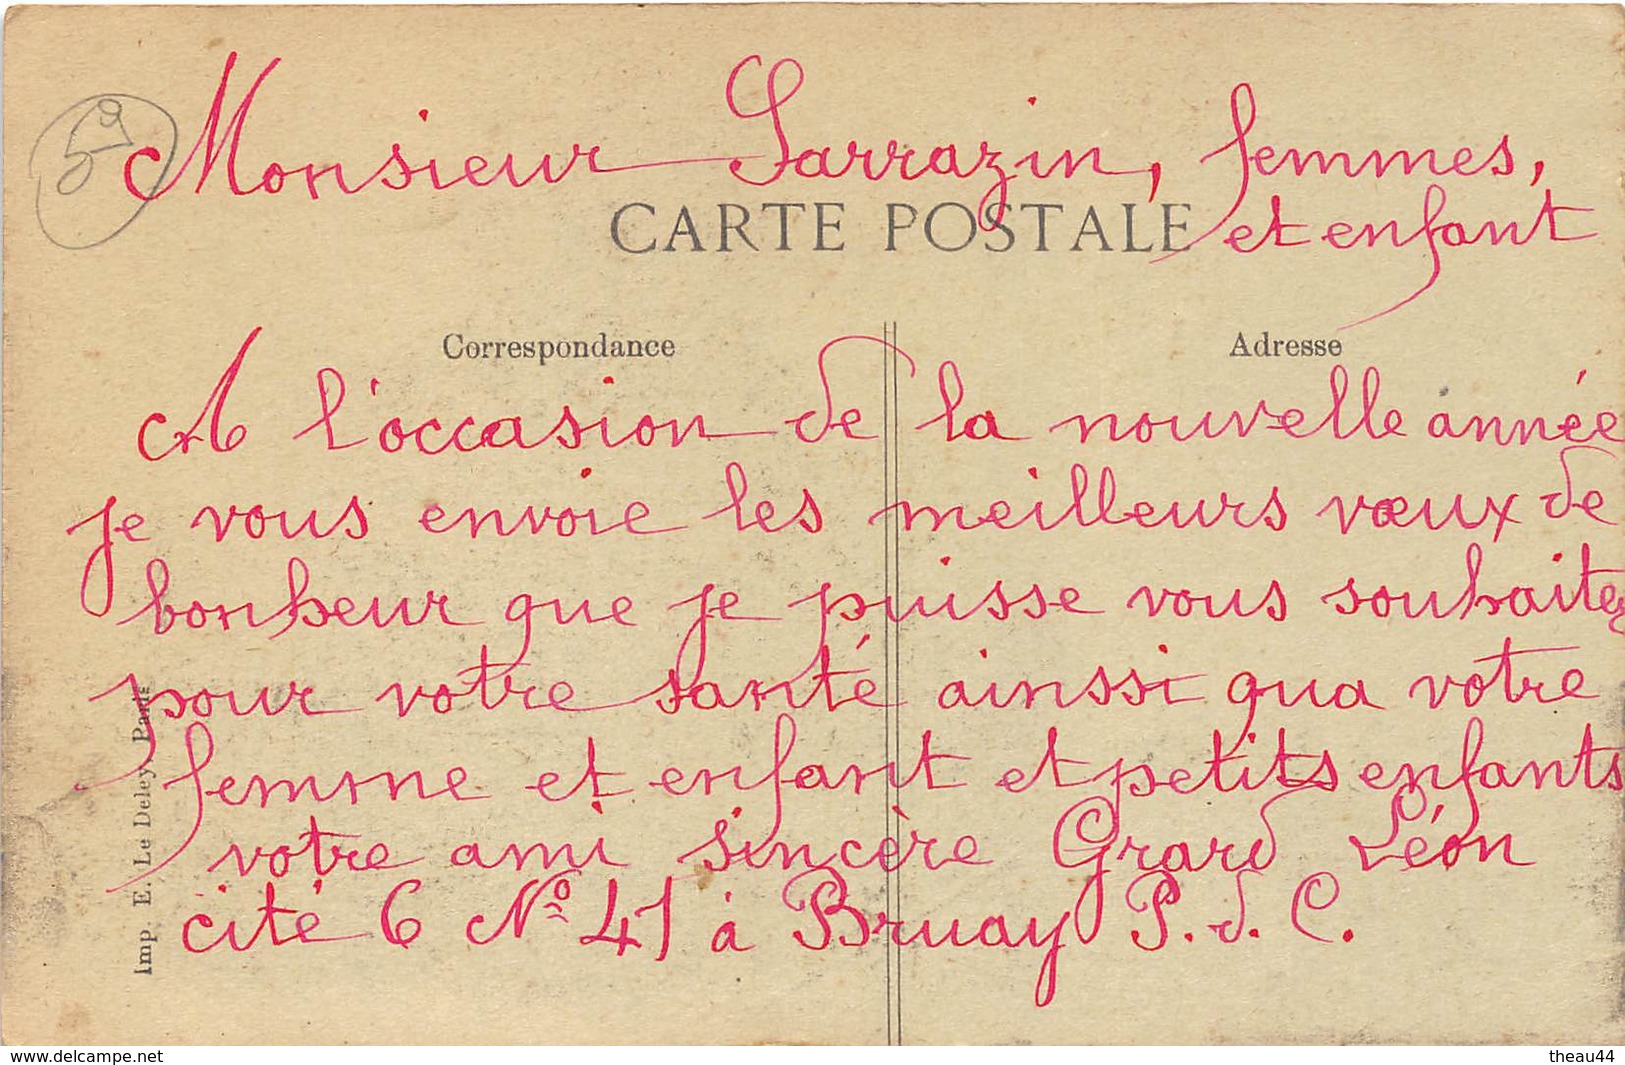 59
Monsieur Sarrazin, femmes,
CARTE POSTALE et enfant
Correspondance Adresse
A l'occasion de la nouvelle année
je vous envoie les meilleurs vœux de
bonheur que je puisse vous souhaitez
pour votre santé ainssi qua votre
femme et enfant et petits enfants
votre ami sincère Grard Léon
cité 6 Nº 41 à Bruay P. d. C.
Imp E. Le Deley, Paris
www.delcampe.net theau44